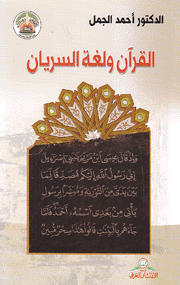 الدكتور أحمد الجمل
القرآن ولغة السريان
وإذ قال عيسى ابن مريم يا بني إسرائيل
إني رسول الله إليكم مصدقا لما
بين يدي من التورية ومبشرا برسول
يأتي من بعدي اسمه أحمد فلما
جاءهم بالبينت قالوا هذا سحر مبين